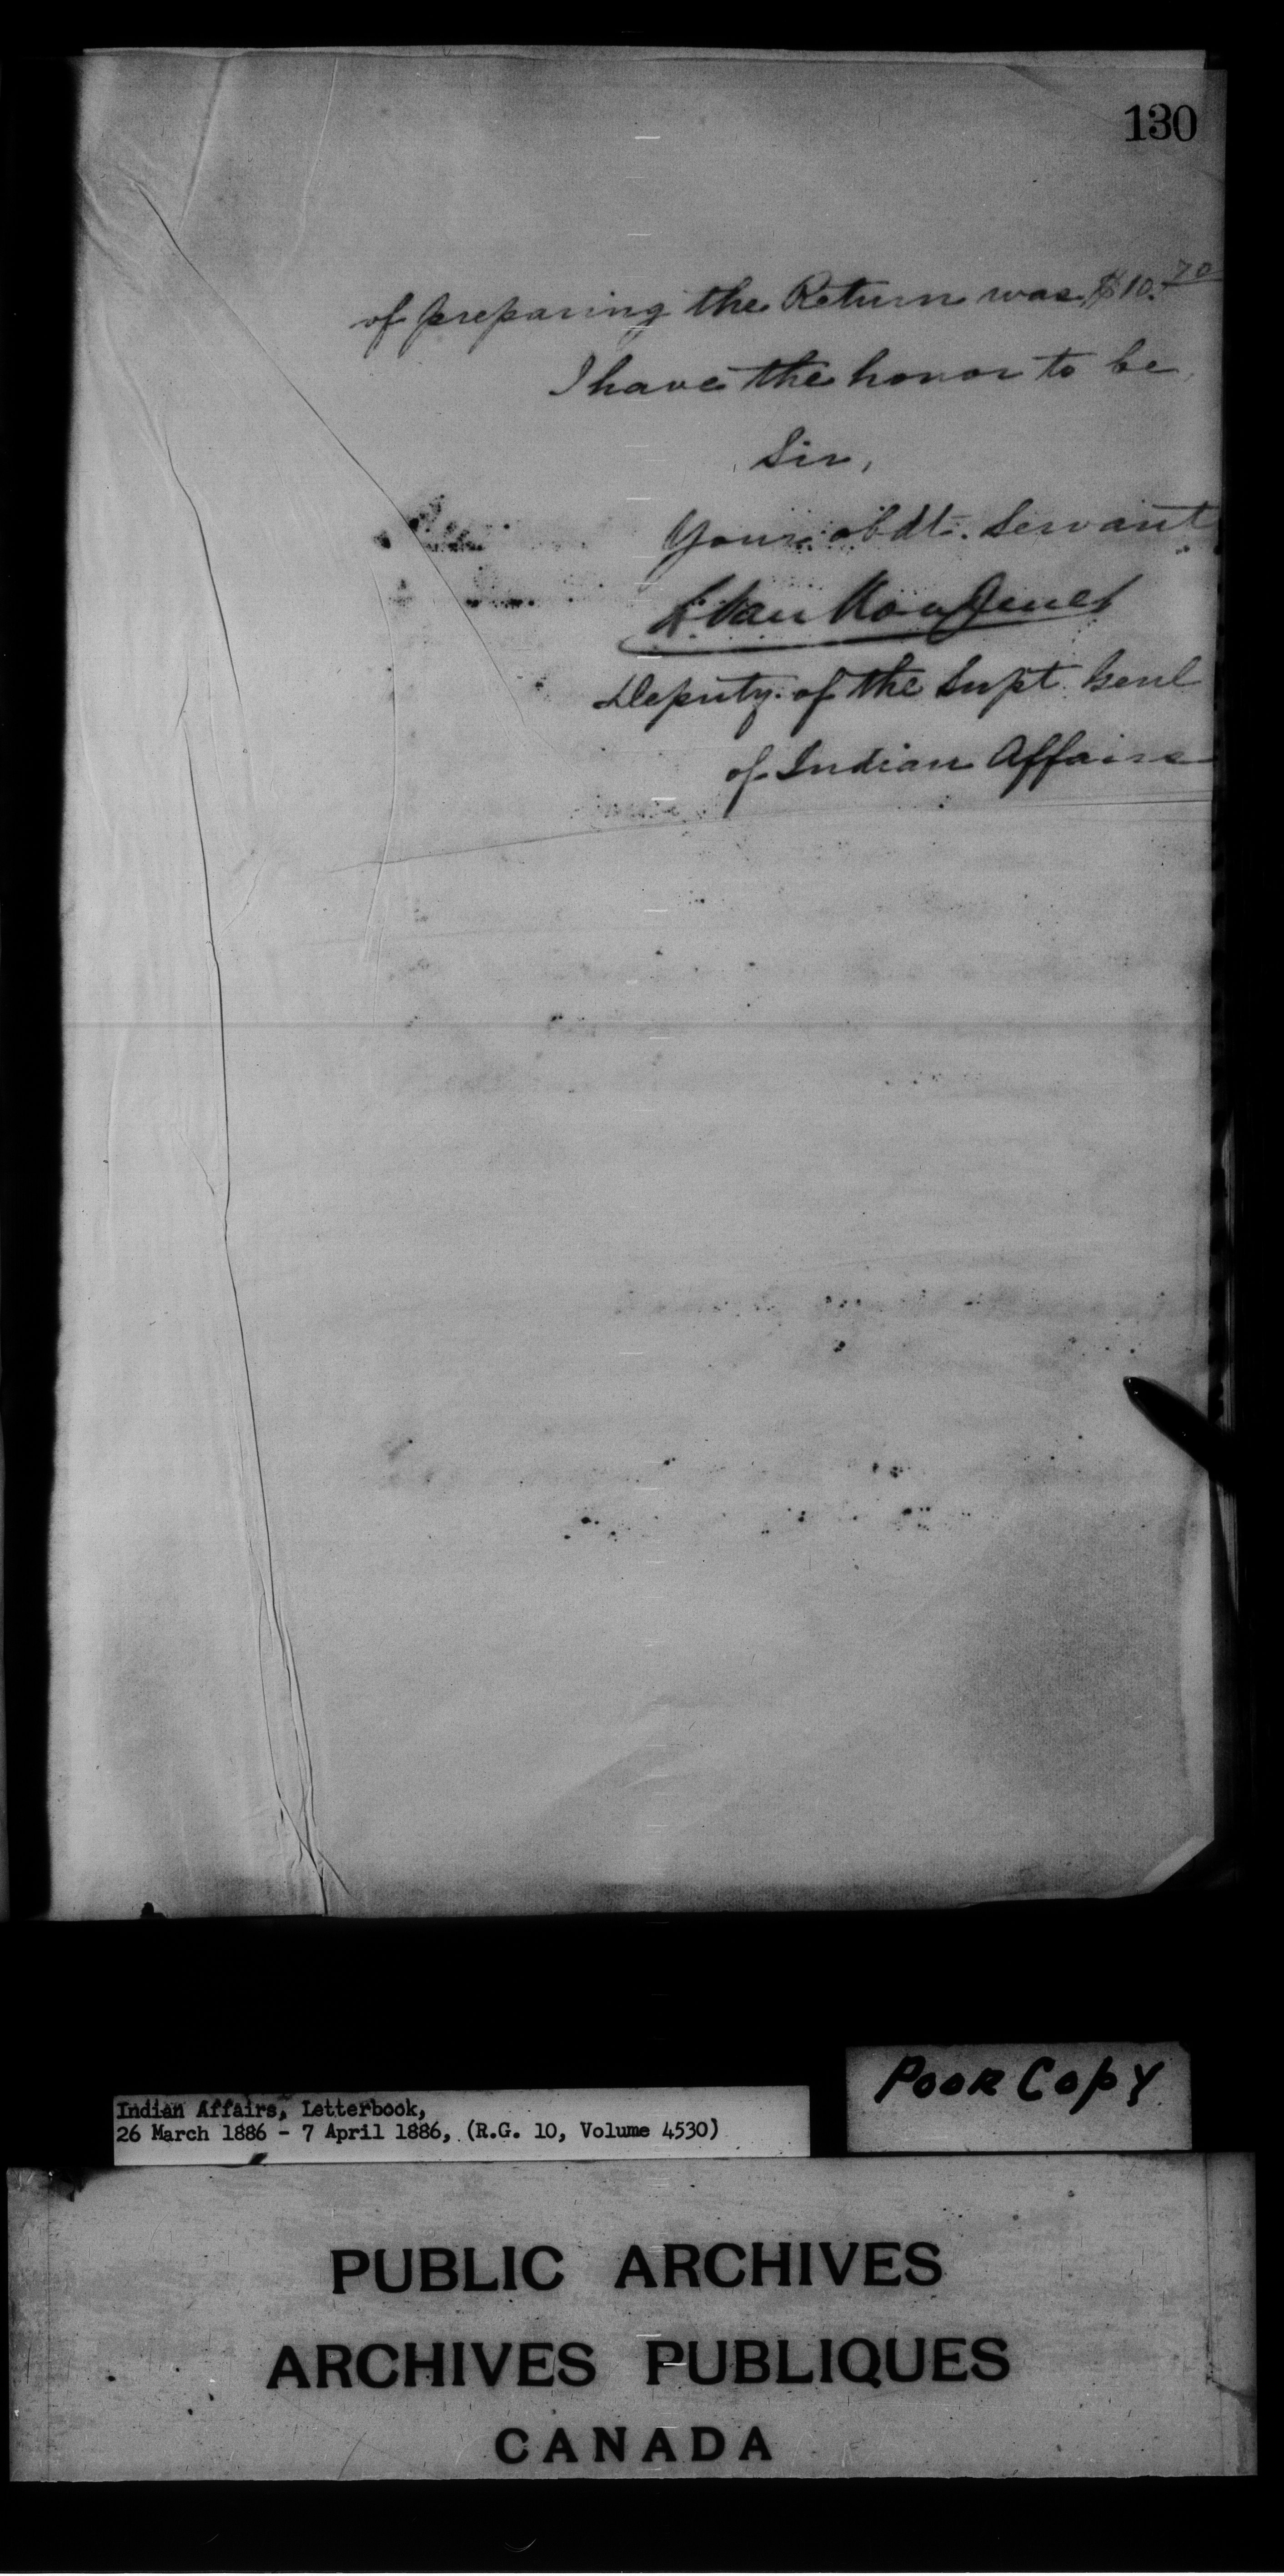 130
of preparing the Return was $10.70
I have the honor to be,
Sir,
Your obdt. Servant
L. VanKoughnet
Deputy of the Supt. Genl
of Indian Affairs
POOR COPY
Indian Affairs, Letterbook,
26 March 1886 - 7 April 1886, (R.G. 10, Volume 4530)
PUBLIC ARCHIVES
ARCHIVES PUBLIQUES
CANADA